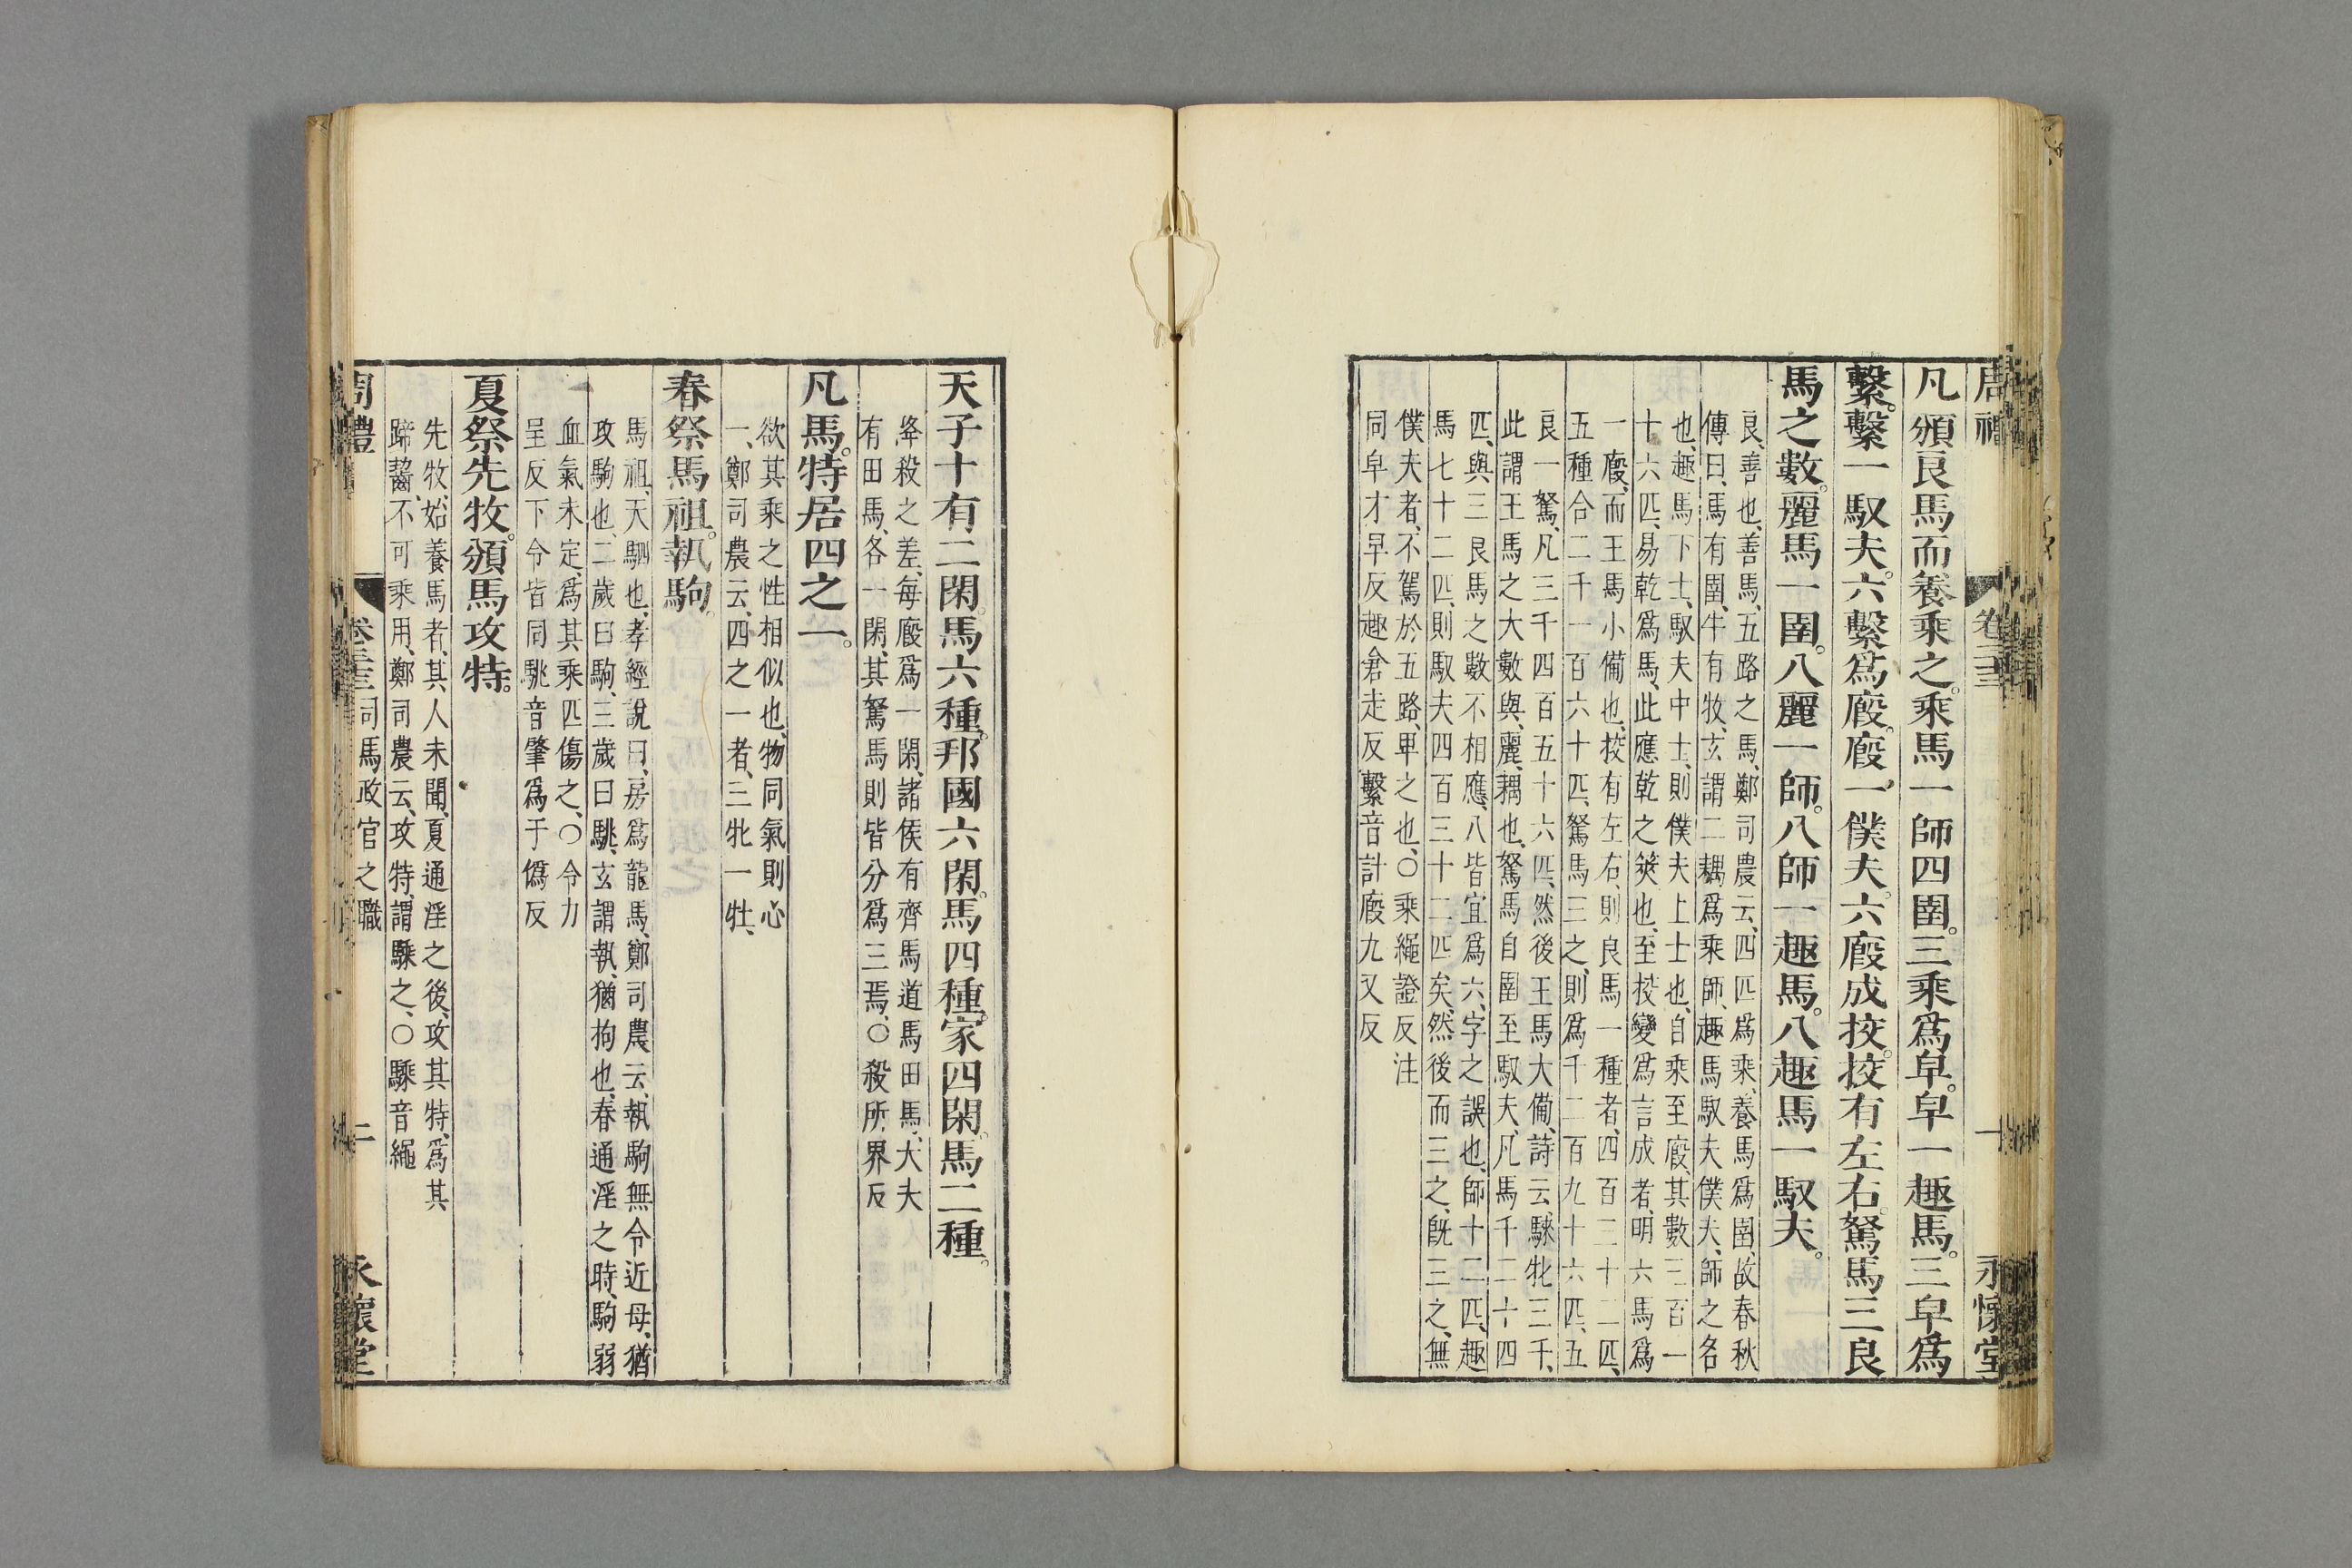 周禮 卷三十三 一 永懷堂
凡頒良馬而養乘之。乘馬一師四圉。三乘爲皁。皁一趣馬。三皁爲
繫。繫一馭夫。六繫爲廄。廄一僕夫。六廄成挍。挍有左右。駑馬三良
馬之數。麗馬一圉。八麗一師。八師一趣馬。八趣馬一馭夫。
良、善也、善馬、五路之馬、鄭司農云、四匹爲乘、養馬爲圉、故春秋
傳曰、馬有圉、牛有牧、玄謂二耦爲乘、師、趣馬馭夫僕夫、師之名
也、趣馬下士、馭夫中士、則僕夫上士也、自乘至廄、其數二百一
十六匹、易乾爲馬、此應乾之筴也、至挍變爲言成者、明六馬爲
一廄、而王馬小備也、挍有左右、則良馬一種者、四百三十二匹、
五種合二千一百六十匹、駑馬三之、則爲千二百九十六匹、五
良一駑、凡三千四百五十六匹、然後王馬大備、詩云、騋牝三千、
此謂王馬之大數與、麗、耦也、駑馬自圉至馭夫、凡馬千二十四
匹、與三良馬之數不相應、八皆宜爲六、字之誤也、師十二匹、趣
馬七十二匹、則馭夫四百三十二匹矣、然後而三之、旣三之、無
僕夫者、不駕於五路、卑之也、○乘繩證反注
同皁才早反趣倉走反繫音計廄九又反
天子十有二閑。馬六種。邦國六閑。馬四種。家四閑。馬二種。
降殺之差、每廄爲一閑、諸侯有齊馬道馬田馬、大夫
有田馬、各一閑、其駑馬則皆分爲三焉、○殺所界反
凡馬。特居四之一。
欲其乘之性相似也、物同氣則心
一、鄭司農云、四之一者、三牝一牡、
春祭馬祖。執駒。
馬祖、天駟也、孝經說曰、房爲龍馬、鄭司農云、執駒無令近母、猶
攻駒也、二歲曰駒、三歲曰駣、玄謂執、猶拘也、春通淫之時、駒弱
血氣未定、爲其乘匹傷之、○令力
呈反下令皆同駣音肇爲于僞反
夏祭先牧。頒馬攻特。
先牧、始養馬者、其人未聞、夏通淫之後、攻其特、爲其
蹄齧、不可乘用、鄭司農云、攻特、謂騬之、○騬音繩
周禮 卷三十三 司馬政官之職 二 永懷堂